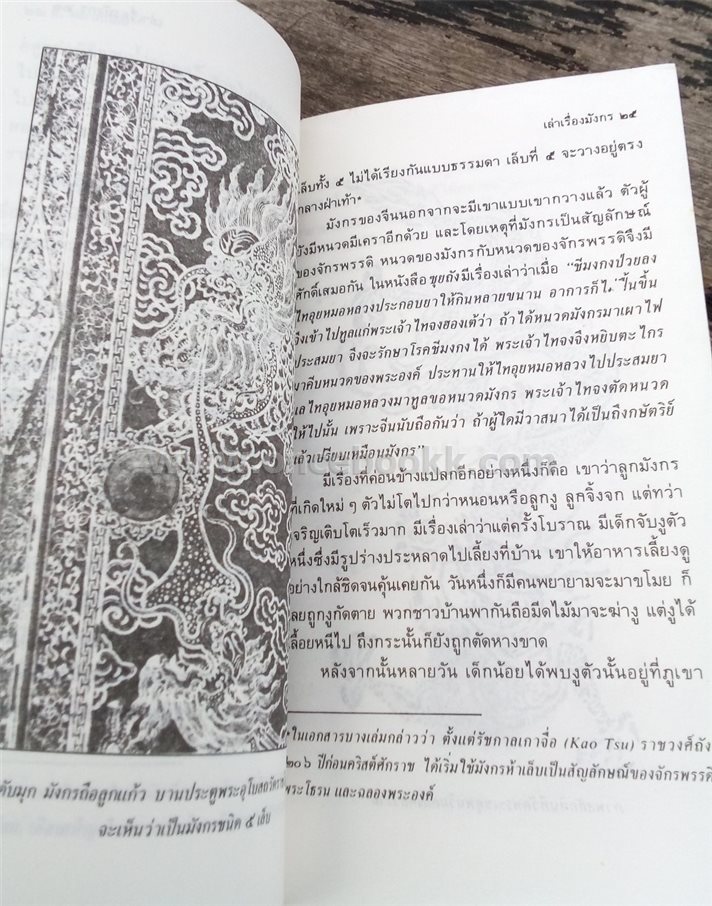 ดับมุก มังกรถือลูกแก้ว บานประตูพระอุโบสถวัดรา
จะเห็นว่าเป็นมังกรชนิด ๕ เล็บ
เล่าเรื่องมังกร ๒๕
เล็บทั้ง ๕ ไม่ได้เรียงกันแบบธรรมดา เล็บที่ ๕ จะวางอยู่ตรง
กลางฝ่าเท้า*
มังกรของจีนนอกจากจะมีเขาแบบเขากวางแล้ว ตัวผู้
ยังมีหนวดมีเคราอีกด้วย และโดยเหตุที่มังกรเป็นสัญลักษณ์
ของจักรพรรดิ หนวดของมังกรกับหนวดของจักรพรรดิจึงมี
ศักดิ์เสมอกัน ในหนังสือซุยถังมีเรื่องเล่าว่าเมื่อ "ชีมงกงป่วยลง
ไทอุยหมอหลวงประกอบยาให้กินหลายขนาน อาการก็ไ ฟื้นขึ้น
จึงเข้าไปทูลแก่พระเจ้าไทจงฮองเต้ว่า ถ้าได้หนวดมังกรมาเผาไฟ
ประสมยา จึงจะรักษาโรคชีมงกงได้ พระเจ้าไทจงจึงหยิบตะไกร
มาคีบหนวดของพระองค์ ประทานให้ไทอุยหมอหลวงไปประสมยา
แลไทอุยหมอหลวงมาทูลขอหนวดมังกร พระเจ้าไทจงตัดหนวด
ให้ไปนั้น เพราะจีนนับถือกันว่า ถ้าผู้ใดมีวาสนาได้เป็นถึงกษัตริย์
แล้วเปรียบเหมือนมังกร"
มีเรื่องที่ค่อนข้างแปลกอีกอย่างหนึ่งก็คือ เขาว่าลูกมังกร
ที่เกิดใหม่ ๆ ตัวไม่โตไปกว่าหนอนหรือลูกงู ลูกจิ้งจก แต่ทว่า
เจริญเติบโตเร็วมาก มีเรื่องเล่าว่าแต่ครั้งโบราณ มีเด็กจับงูตัว
หนึ่งซึ่งมีรูปร่างประหลาดไปเลี้ยงที่บ้าน เขาให้อาหารเลี้ยงดู
อย่างใกล้ชิดจนคุ้นเคยกัน วันหนึ่งก็มีคนพยายามจะมาขโมย ก็
เลยถูกงูกัดตาย พวกชาวบ้านพากันถือมีดไม้มาจะฆ่างู แต่งูได้
เลื้อยหนีไป ถึงกระนั้นก็ยังถูกตัดหางขาด
หลังจากนั้นหลายวัน เด็กน้อยได้พบงูตัวนั้นอยู่ที่ภูเขา
*ในเอกสารบางเล่มกล่าวว่า ตั้งแต่รัชกาลเกาจื่อ (Kao Tsu) ราชวงศ์ถัง
๒๐๖ ปีก่อนคริสต์ศักราช ได้เริ่มใช้มังกรห้าเล็บเป็นสัญลักษณ์ของจักรพรรดิ
พระโธรน และฉลองพระองค์